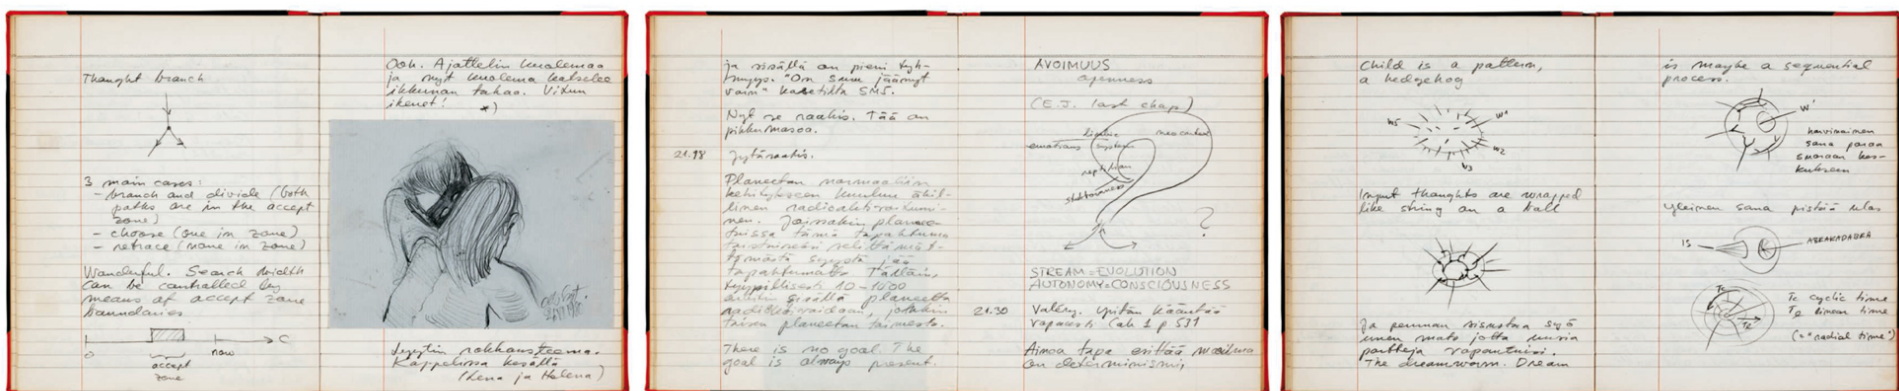 Thought branch
3 main cases:
- branch and divide (both
paths are in the accept
zone)
- choose (one in zone)
- retrace (none in zone)
Wonderful. Search width
can be controlled by
means of accept zone
boundaries
0
now
C
accept
zone
Ooh. Ajattelin kuolemaa
ja nyt kuolema katselee
ikkunan takaa. Vitun
ikenet!
*)
Löysin rakkausteema.
Kappelissa kesällä
(Lena ja Helena)
ja sisällä on pieni tyh-
jyys. "On sunu jäänyt
vain" kasetilta SMS.
Nyt se raakis. Tää on
pikkumasoa.
21.18
Jytäraakis.
Planeetan normaaliin
kehitykseen kuuluu äkil-
linen radioaktivoitumi-
nen. Joissakin planee-
toissa tämä tapahtuma
toistaiseksi selittämät-
tömästä syystä jää
tapahtumatta. Tällöin,
tyypillisesti 10-1000
vuoden sisällä planeetta
radioaktivoidaan, jonkin
toisen planeetan toimesta.
There is no goal. The
goal is always present.
AVOIMUUS
openness
(E.J. last chap)
limbic
system
neocortex
emotions
reptilian
stubbornness
?
STREAM=EVOLUTION
AUTONOMY=CONSCIOUSNESS
21.30
Valéry. yritän kääntää
vapaasti Cah 1 p 531
Ainoa tapa esittää maailma
on determinismi,
Child is a pattern,
a hedgehog
W5
W1
W2
W3
Input thoughts are wrapped
like string on a ball
Ja pennun sisustaa syö
unen mato jotta uusia
polkuja vapautuisi.
The dreamworm. Dream
is maybe a sequential
process.
W'
harvinainen
sana poraa
suoraan kes-
kukseen
yleinen sana pistää ulos
IS
ABRAKADABRA
Tc
Te
Tc cyclic time
Te linear time
(="radial time")